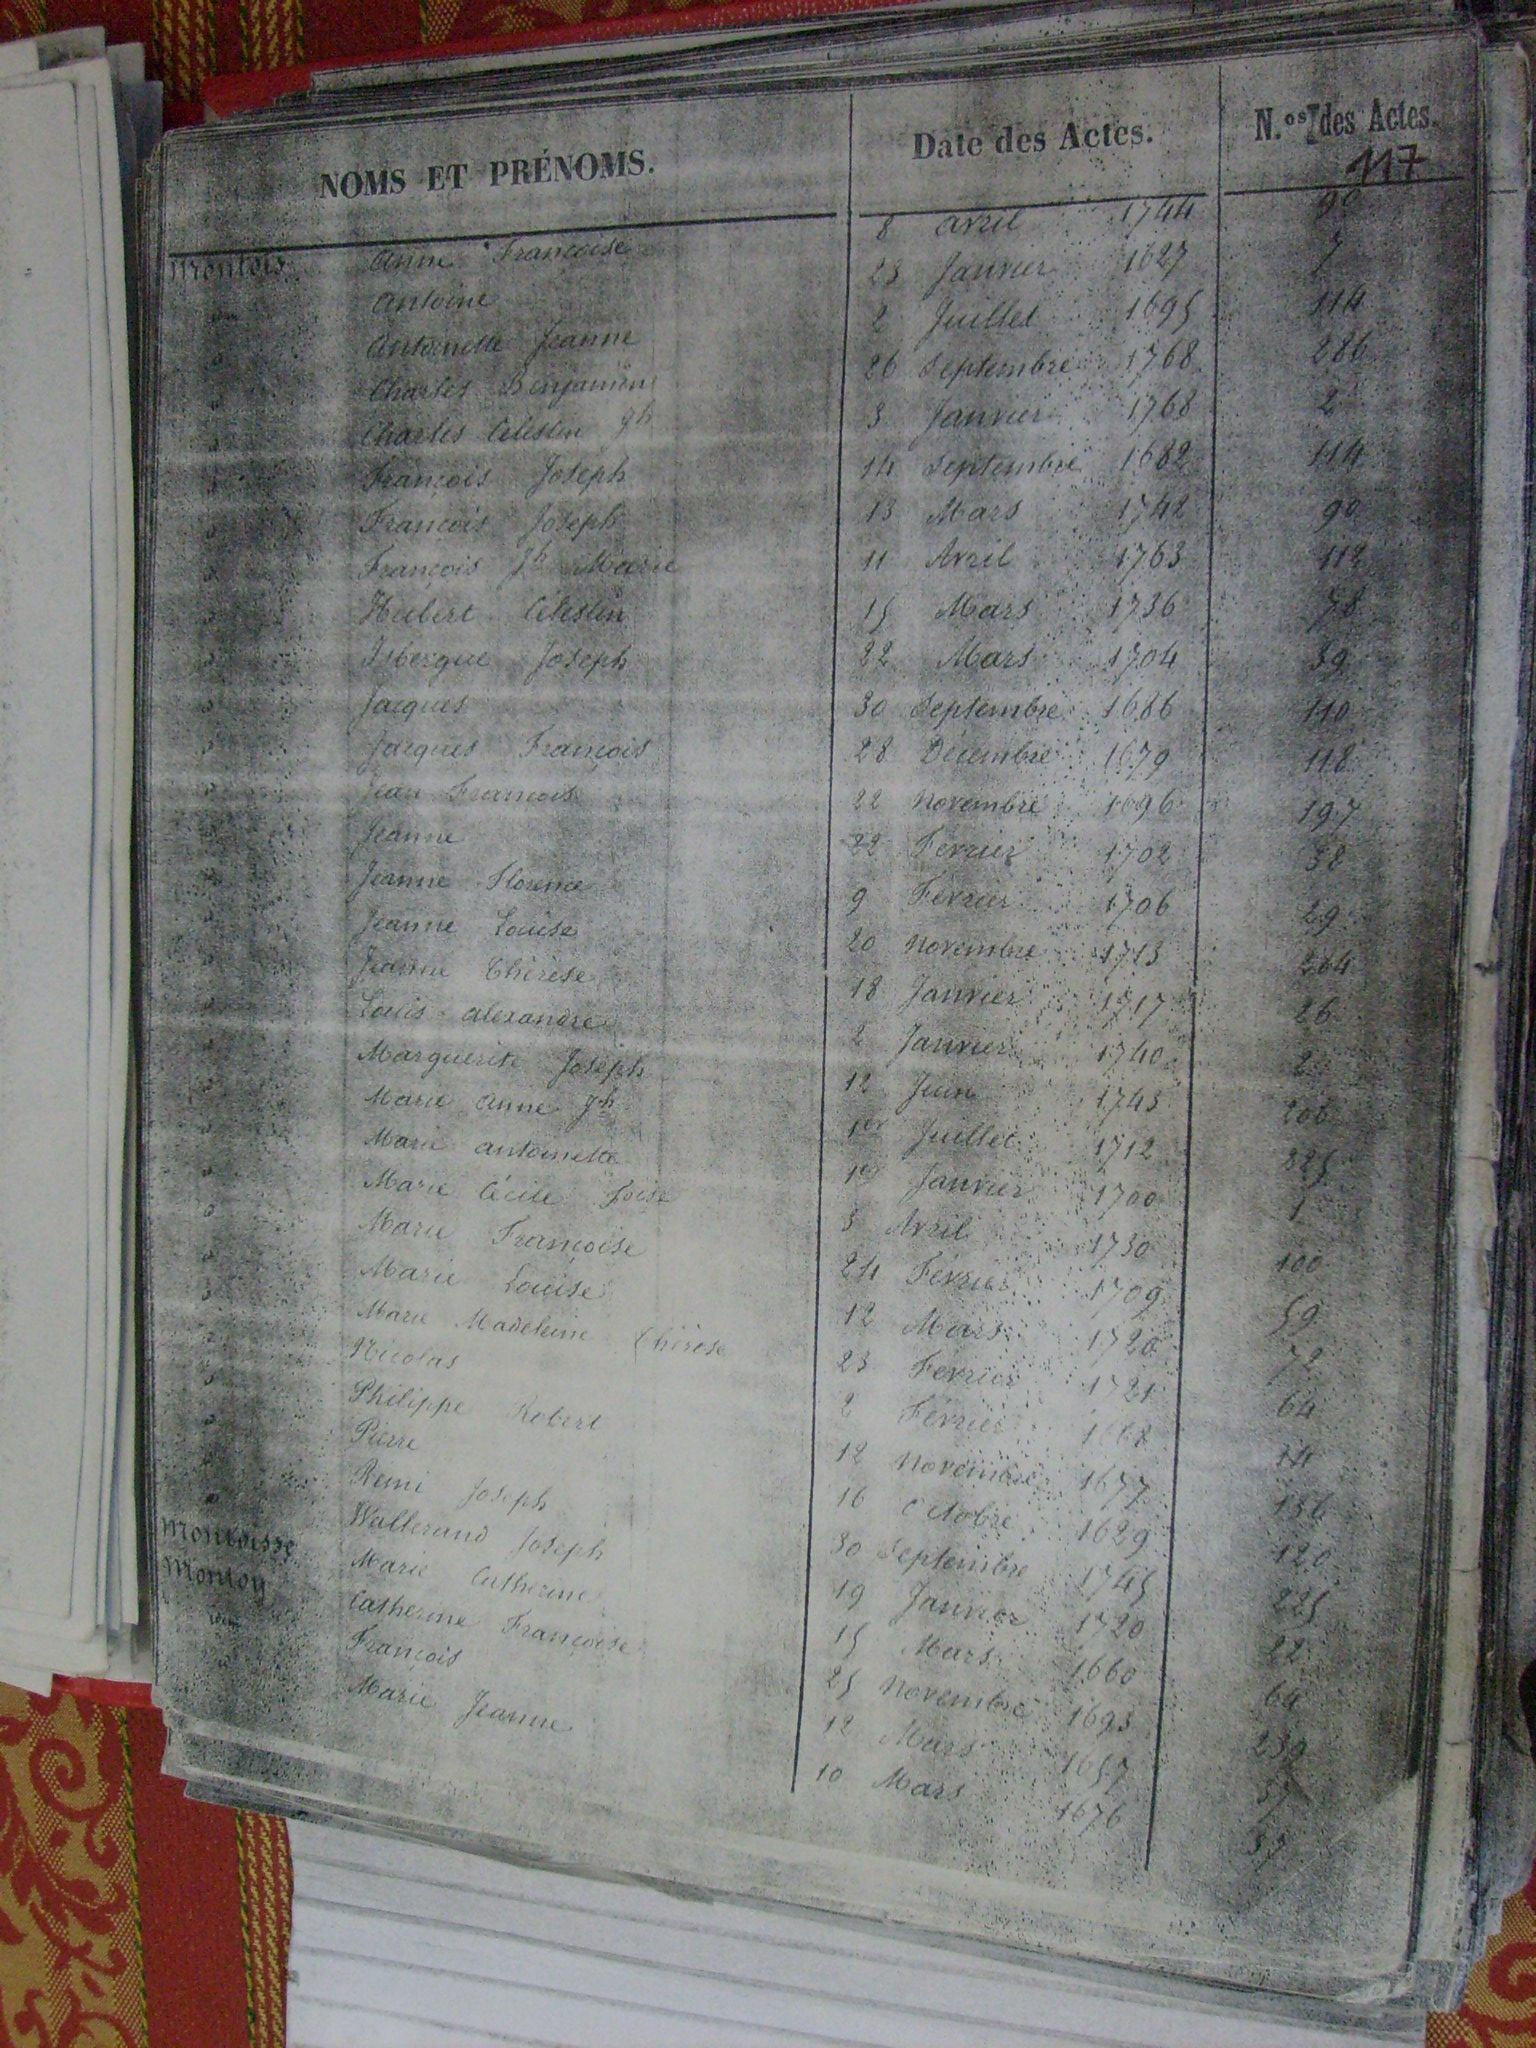 NOMS ET PRÉNOMS. Date des Actes. N.os des Actes.
117
Montois Anne Françoise 8 avril 1744 90
Antoine 23 Janvier 1627 7
Antoinette Jeanne 2 Juillet 1695 114
Charles Benjamin 26 Septembre 1768 286
Charles Celestin Jh 3 Janvier 1768 2
François Joseph 14 Septembre 1682 114
François Joseph 13 Mars 1742 90
François Jh Marie 11 Avril 1763 112
Hubert Célestin 15 Mars 1736 78
Isbergue Joseph 22 Mars 1704 59
Jacques 30 Septembre 1686 110
Jacques François 28 Décembre 1679 118
Jean François 22 Novembre 1696 197
Jeanne 22 Fevrier 1702 38
Jeanne Florence 9 Fevrier 1706 29
Jeanne Louise 20 Novembre 1713 264
Jeanne Thérèse 18 Janvier 1717 26
Louis alexandre 2 Janvier 1740 2
Marguerite Joseph 12 Juin 1743 206
Marie Anne Jh 1er Juillet 1712 325
Marie antoinette 1er Janvier 1700 1
Marie Cécile 3 Avril 1730 100
Marie Françoise 24 Février 1709 59
Marie Louise 12 Mars 1720 72
Marie Madeleine Thérèse 23 Fevrier 1721 64
Nicolas 2 Fevrier 1668
Philippe Robert 12 Novembre 1677 136
Pierre 16 Octobre 1629 120
Remi Joseph 30 Septembre 1745 225
Wallerand Joseph 19 Janvier 1720 22
Montoisse Marie Catherine 15 Mars 1660 64
Montoy Catherine Françoise 25 Novembre 1693 239
François 12 Mars 1657 57
Marie Jeanne 10 Mars 1676 57